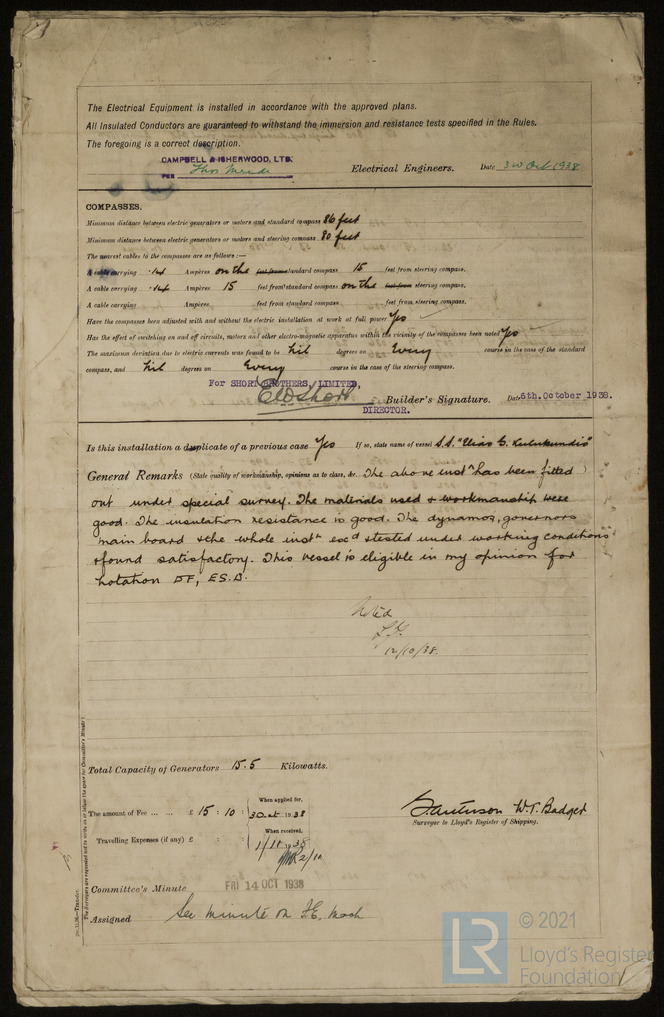 The Electrical Equipment is installed in accordance with the approved plans.
All Insulated Conductors are guaranteed to withstand the immersion and resistance tests specified in the Rules.
The foregoing is a correct description.
CAMPBELL & ISHERWOOD, LTD.
PER Electrical Engineers. Date 3rd Oct 1938
COMPASSES.
Minimum distance between electric generators or motors and standard compass 86 feet
Minimum distance between electric generators or motors and steering compass 80 feet
The nearest cables to the compasses are as follows:—
A cable carrying .14 Ampères on the feet from standard compass 15 feet from steering compass.
A cable carrying .14 Ampères 15 feet from standard compass on the feet from steering compass.
A cable carrying Ampères feet from standard compass feet from steering compass.
Have the compasses been adjusted with and without the electric installation at work at full power Yes
Has the effect of switching on and off circuits, motors and other electro-magnetic apparatus within the vicinity of the compasses been noted Yes
The maximum deviation due to electric currents was found to be Nil degrees on Every course in the case of the standard
compass, and Nil degrees on Every course in the case of the steering compass.
For SHORT BROTHERS, LIMITED,
Builder's Signature. Date 6th.October 1938.
DIRECTOR.
Is this installation a duplicate of a previous case Yes If so, state name of vessel S.S. "Elias G. Kulukundis"
General Remarks (State quality of workmanship, opinions as to class, &c. The above instn has been fitted
out under special survey. The materials used & workmanship were
good. The insulation resistance is good. The dynamos, governors
main board & the whole instn exd & tested under working conditions
& found satisfactory. This vessel is eligible in my opinion for
notation DF, ES.D.
Noted
12/10/38.
Total Capacity of Generators 15.5 Kilowatts.
The amount of Fee ... ... £ 15 : 10 :
When applied for,
3 Oct 1938
Travelling Expenses (if any) £ : :
When received,
1/11 1938
W.T. Badger
Surveyor to Lloyd's Register of Shipping.
Committee's Minute FRI 14 OCT 1938
Assigned See minute on F.E. mach
The Surveyors are requested not to write on or below the space for Committee's Minute.
Transfer.
LR © 2021
Lloyd's Register
Foundation